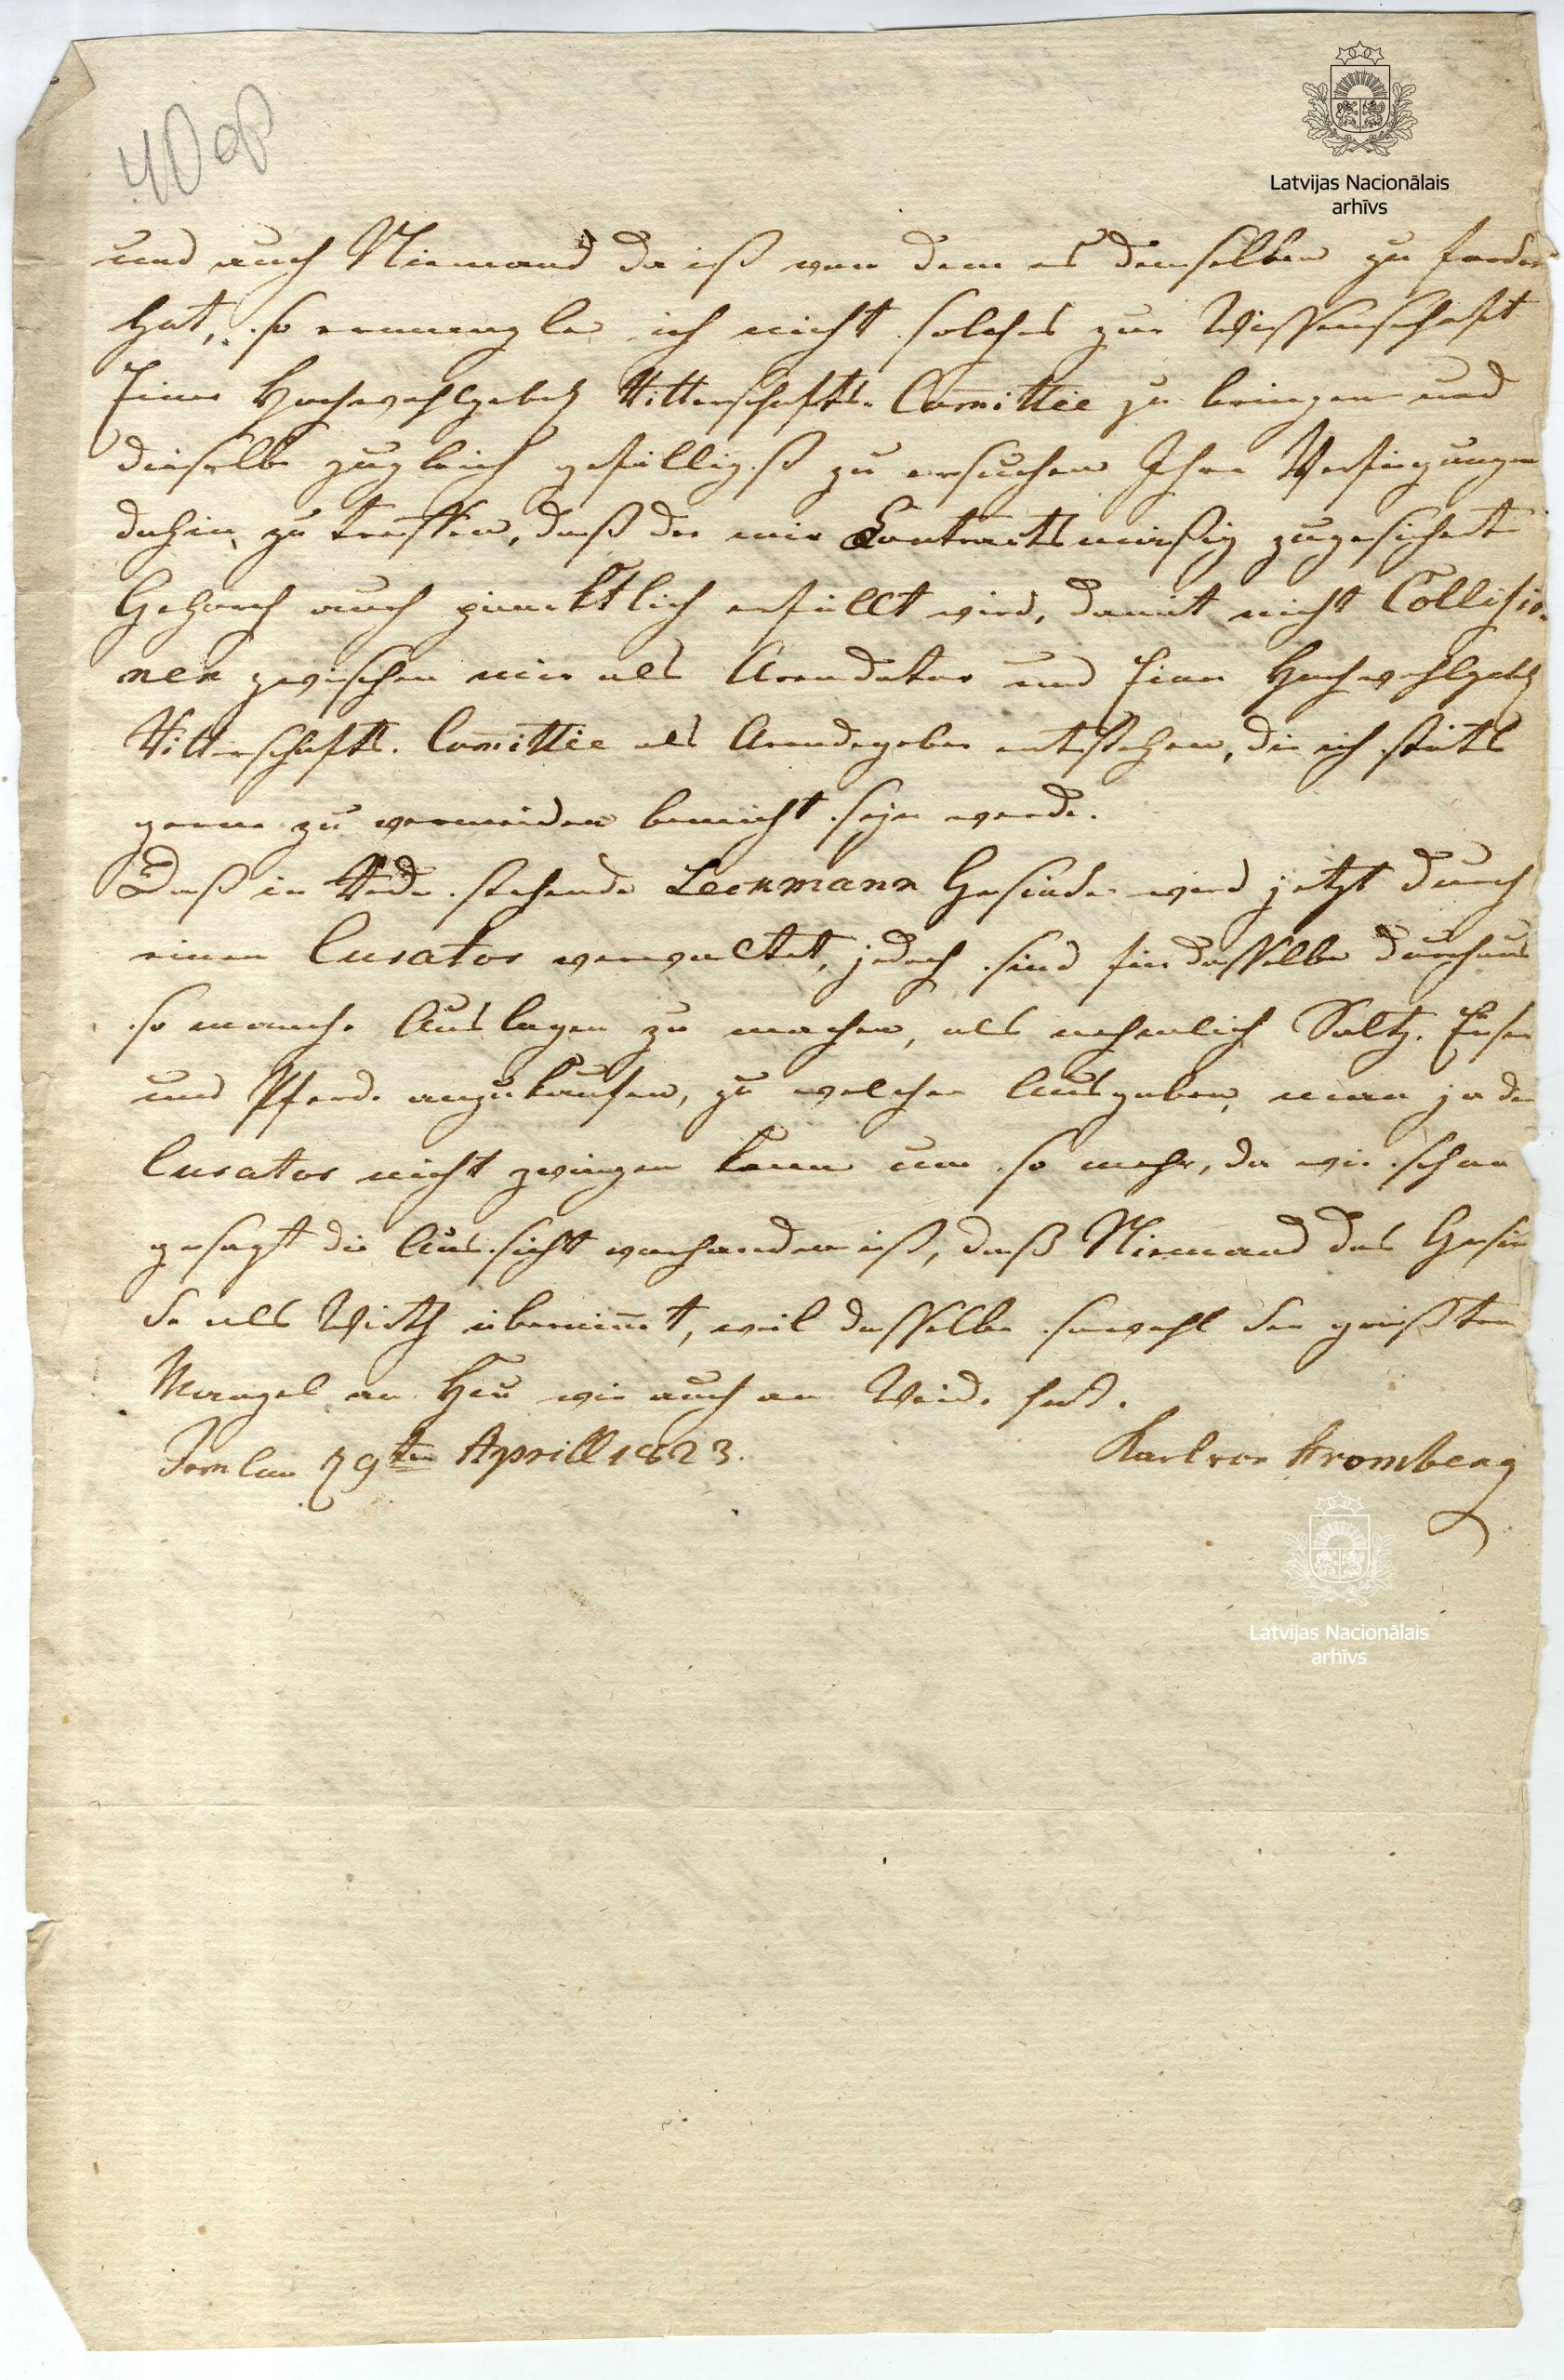 40 ор
Latvijas Nacionālais
arhīvs
und auch Niemand da ist von dem es denselben zu fordern
hat, so ermangle ich nicht solches zur Wissenschaft
Einer Hochwohlgeb. Ritterschafts-Comittée zu bringen und
dieselbe zugleich gefälligst zu ersuchen Ihre Verfügungen
dahin zu treffen, daß der mir Contractsmäßig zugesicherte
Gehorch auch pünktlich erfüllt wird, damit nicht Collisio-
nen zwischen mir als Arendator und Einer Hochwohlgeb.
Ritterschafts-Comittée als Arendegeber entstehen, die ich stets
gerne zu vermeiden bemüht seyn werde.
Daß in Rede stehende Leckmann Gesinde wird jetzt durch
einen Curator verwaltet, jedoch sind für dasselbe durchaus
so manche Auslagen zu machen, als nehmlich Saltz, Eisen
und Pferde anzukaufen, zu welchen Ausgaben man ja den
Curator nicht zwingen kann um so mehr, da wie schon
gesagt die Aussicht vorhanden ist, daß Niemand das Gesin
de als Wirth übernim̅t, weil dasselbe sowohl den größten
Mangel an Heu wie auch an Weide hat.
29ten Aprill 1823. Karl von Kromberg
Latvijas Nacionālais
arhīvs